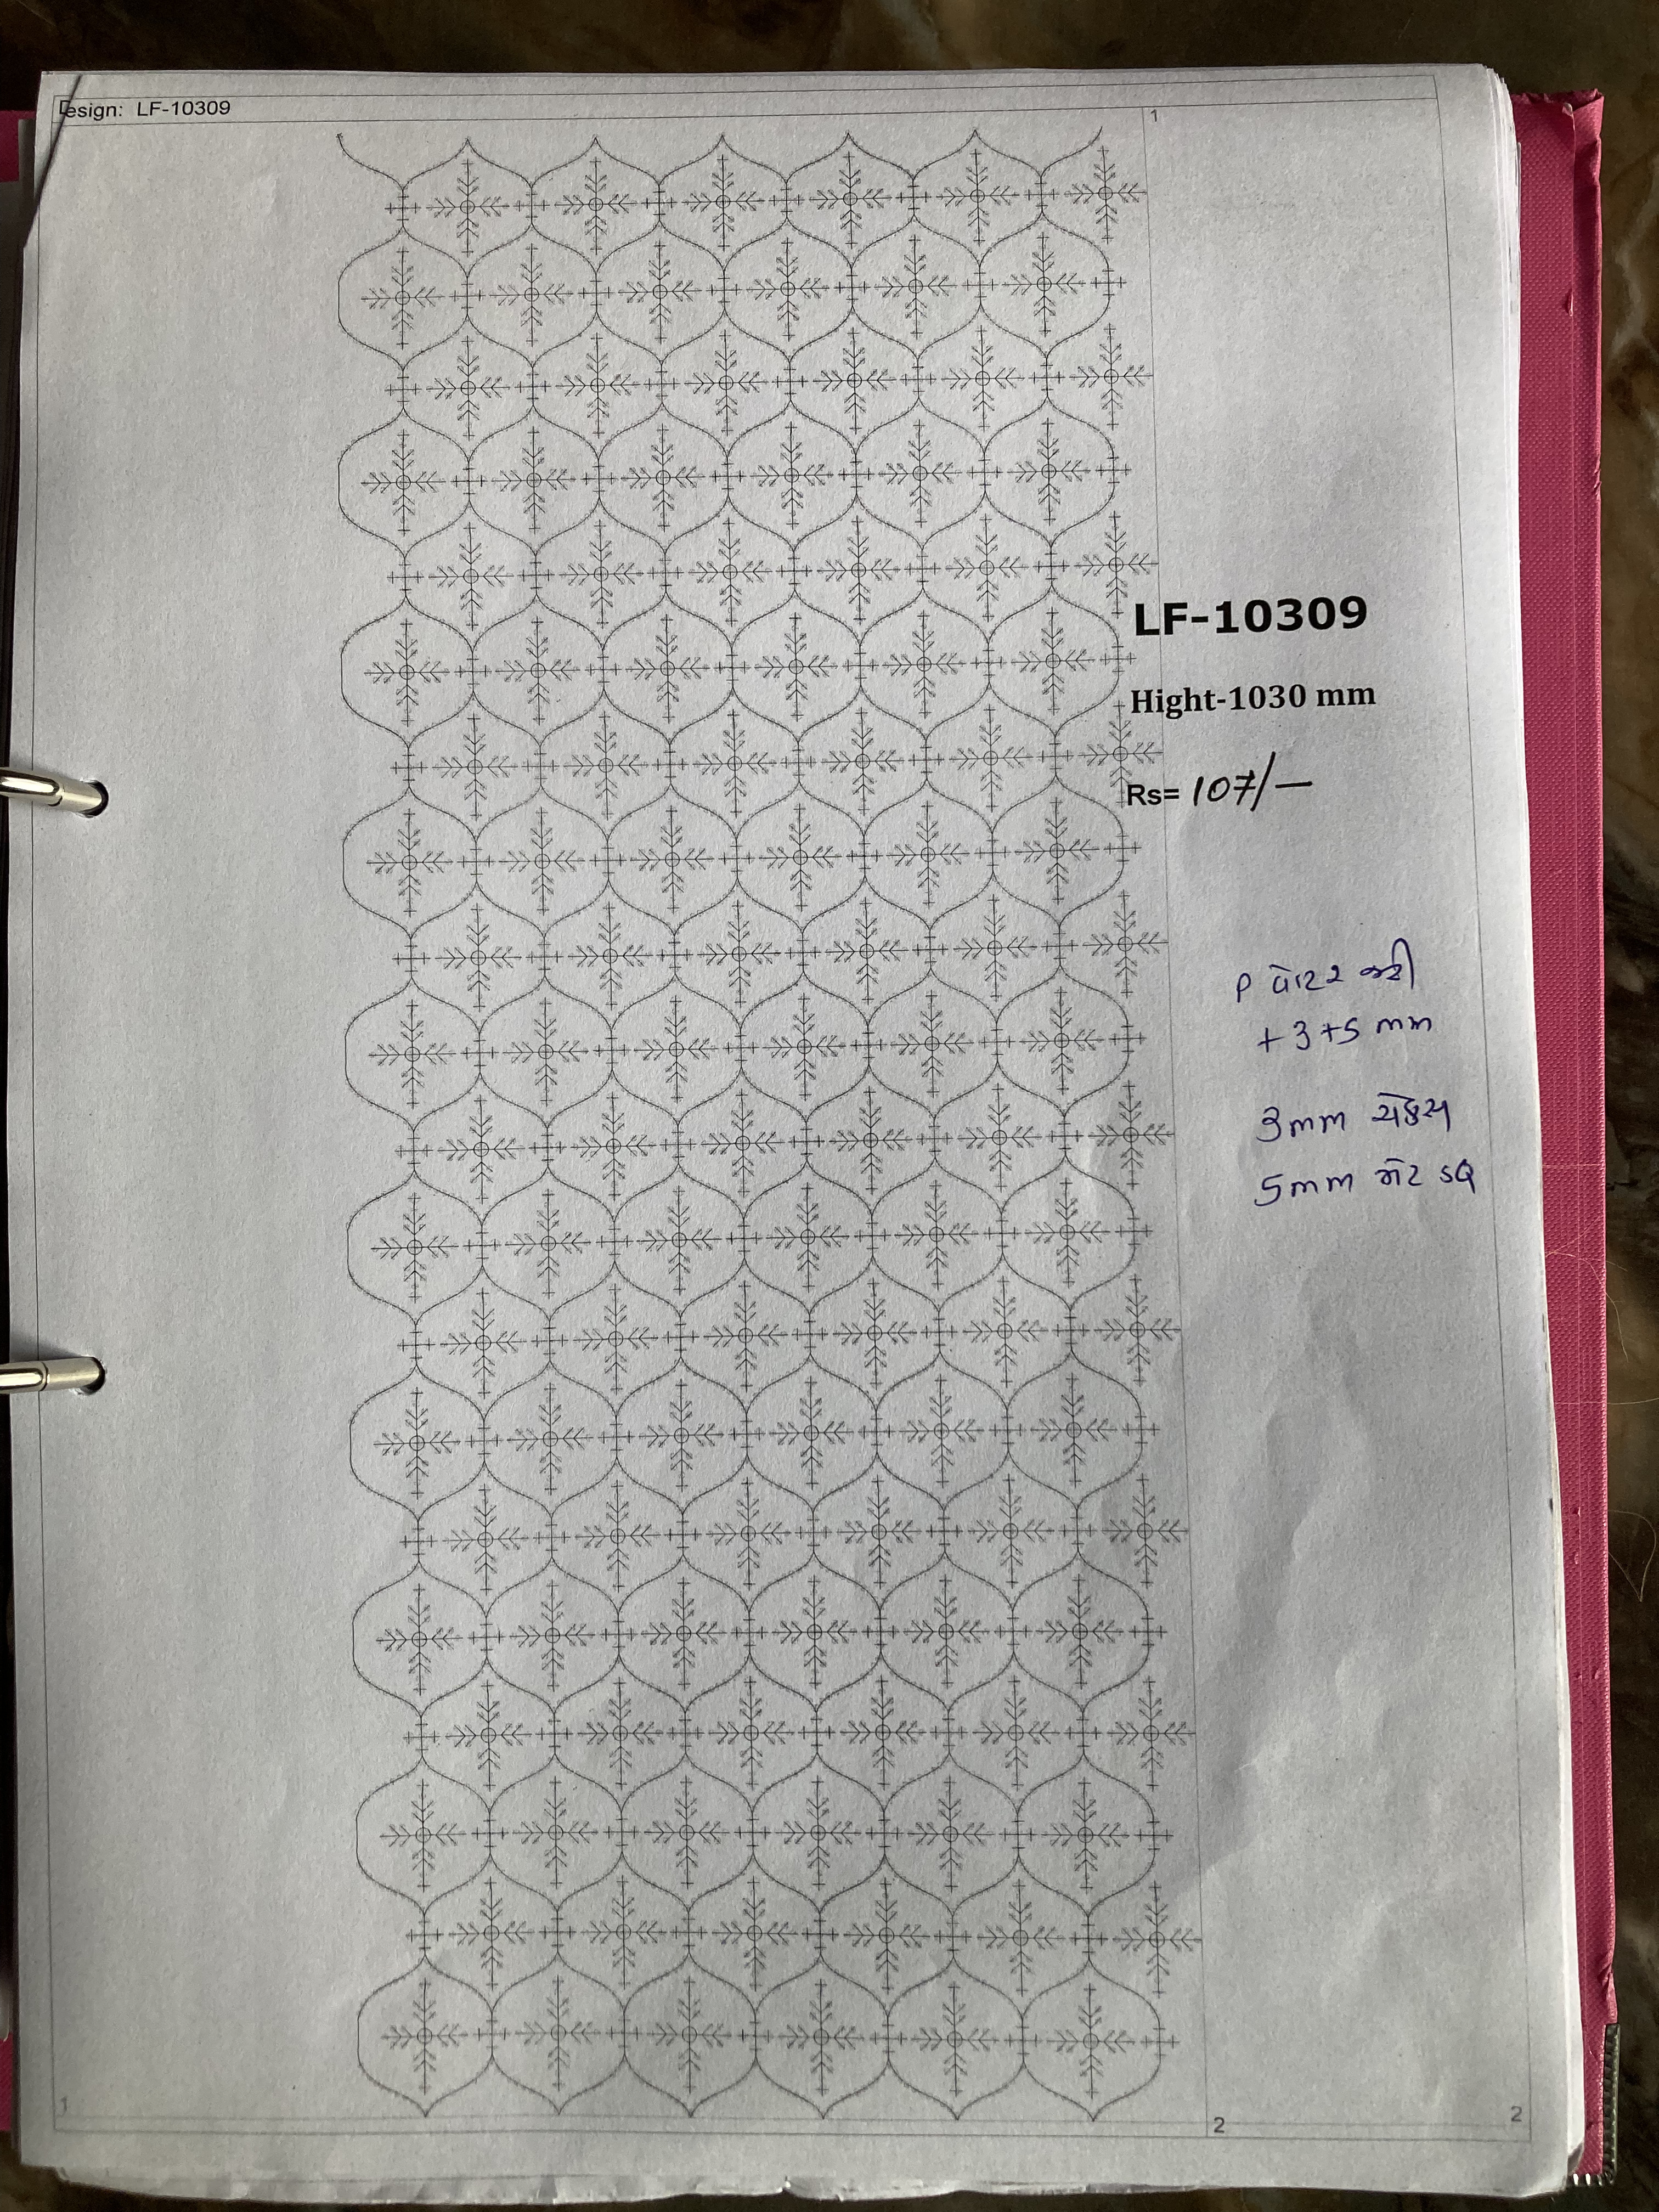 Design: LF-10309
1
LF-10309
Hight-1030 mm
Rs= 107/-
P વોટર જરી
+3+5 mm
3mm
5mm મેટ SQ
1
2
2